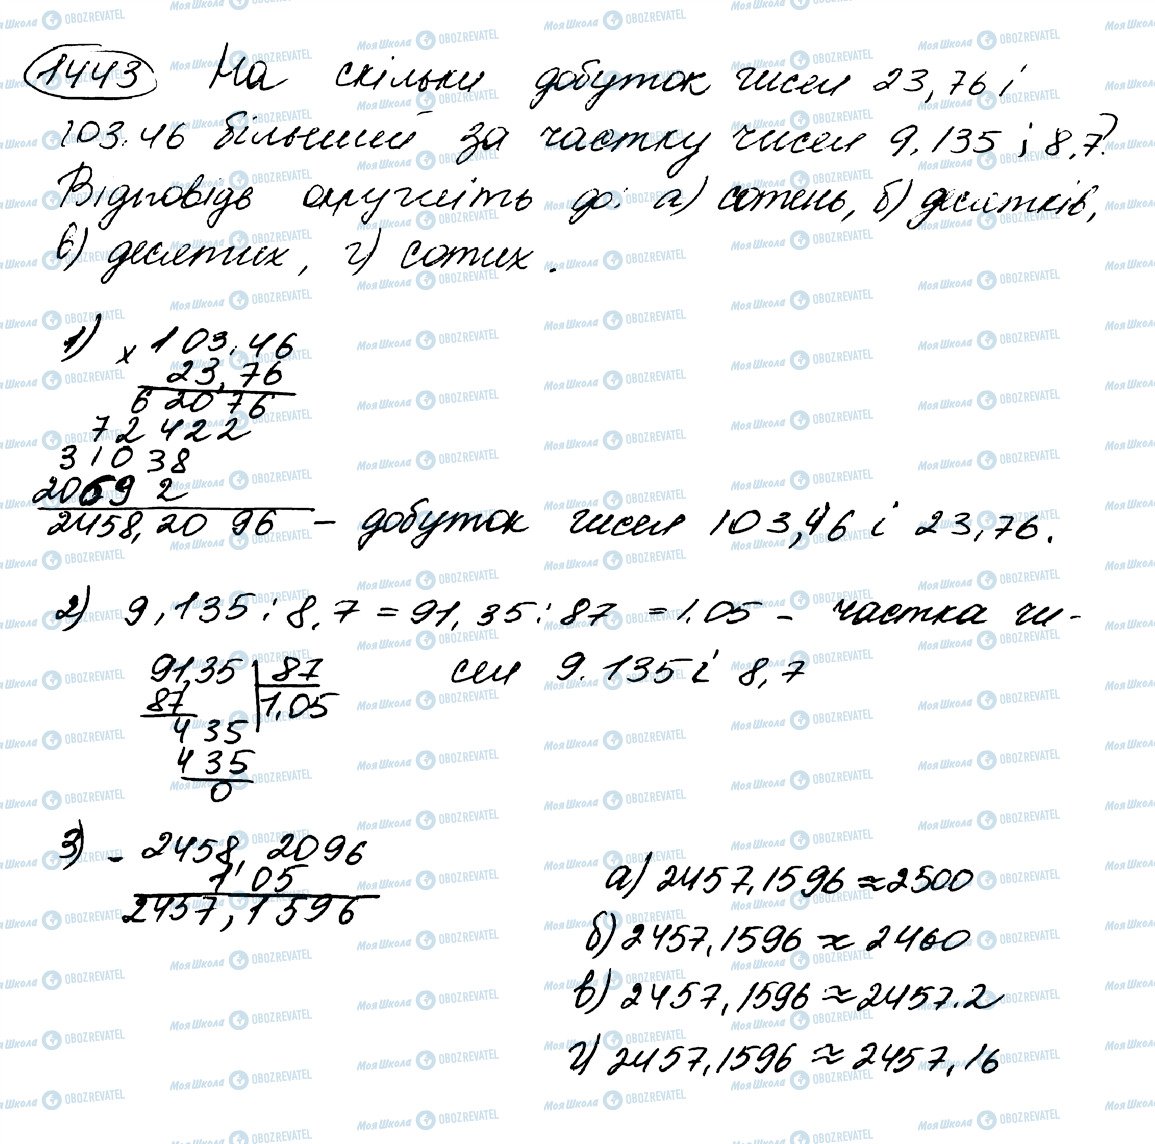 1443 На скільки добуток чисел 23,76 і
103.46 більший за частку чисел 9.135 і 8,7?
Відповідь округліть до: а) сотень, б) десятків,
в) десятих, г) сотих.
1) × 103.46
23,76
62076
72422
31038
20692
2458,2096 – добуток чисел 103,46 і 23,76.
2) 9,135 : 8,7 = 91,35 : 87 = 1.05 – частка чи-
сел 9.135 і 8,7
91,35 | 87
87 | 1,05
435
435
0
3) - 2458,2096
1,05
2457,1596
а) 2457,1596 ≈ 2500
б) 2457,1596 ≈ 2460
в) 2457,1596 ≈ 2457.2
г) 2457,1596 ≈ 2457,16
Моя Школа OBOZREVATEL